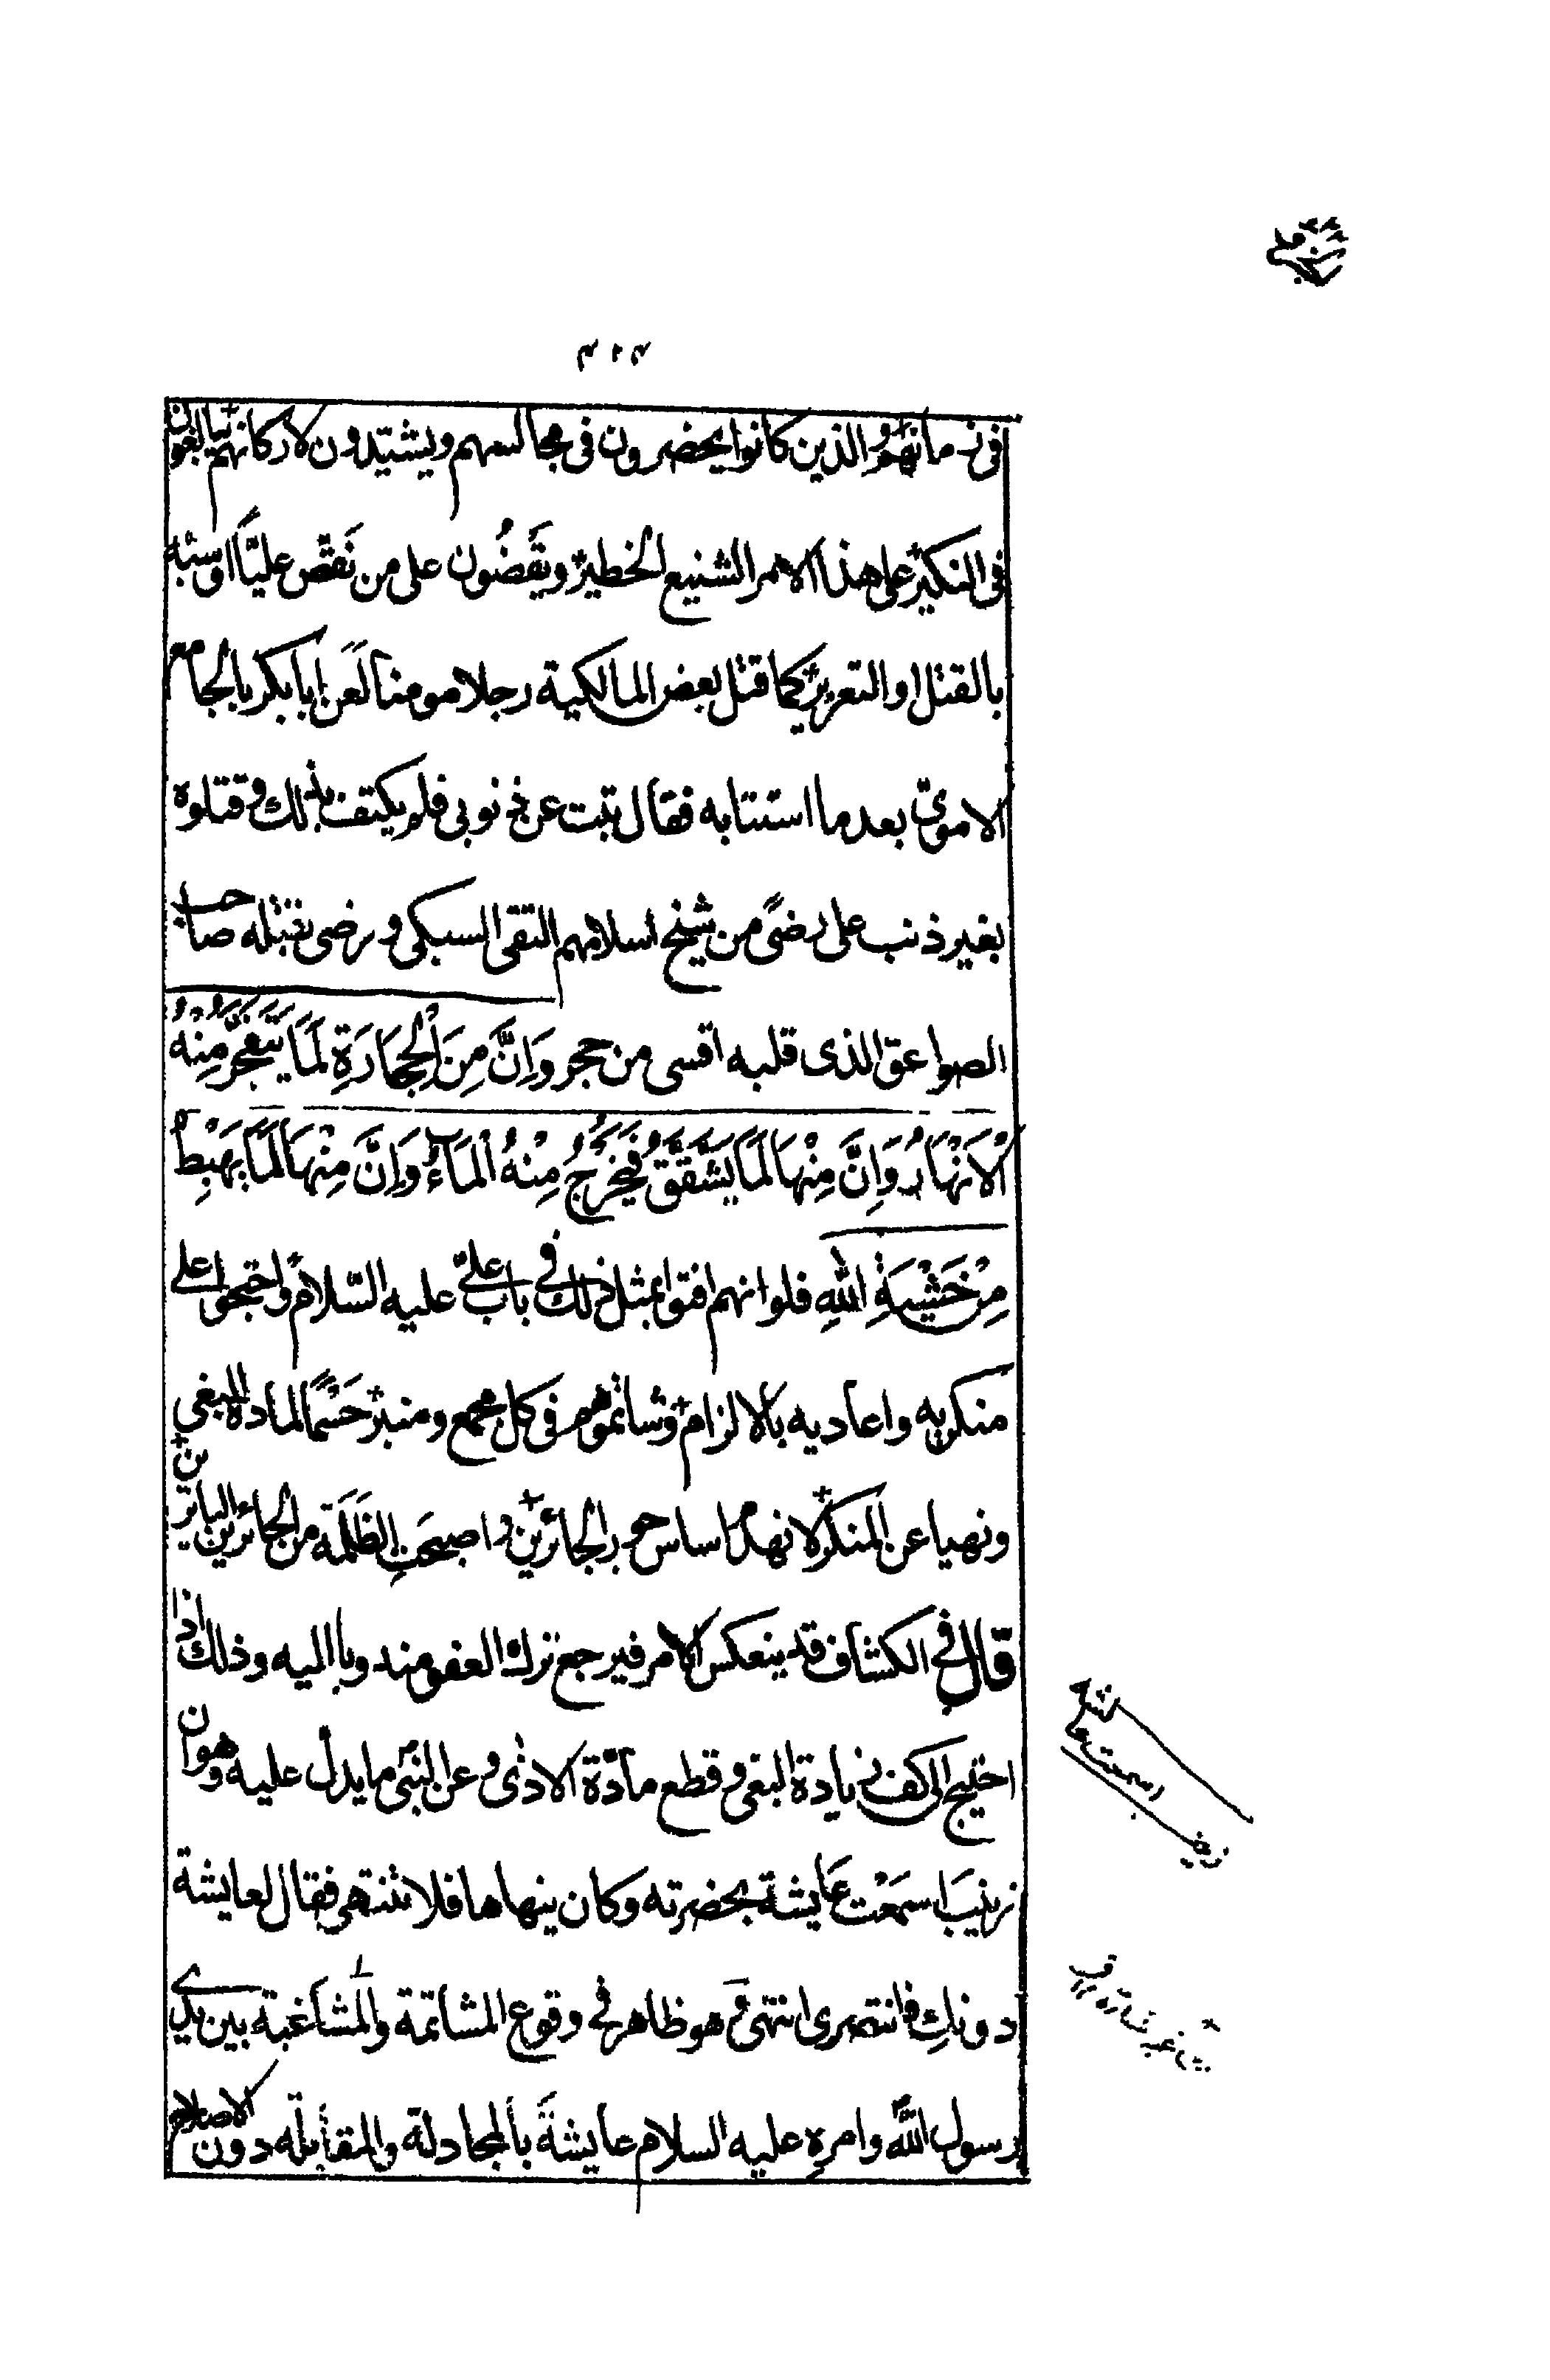 ٤١٣
فى زمانهم والذين كانوا يحضرون فى مجالسهم ويشيّدون لاركانهم يبالغون
فى النكير على هذا الامر الشنيع الخطير ويقضُون على من نقّص عليّاً او سبّه
بالقتل او التعزير كما قتل بعض المالكية رجلا مومنا لعن ابا بكر بالجامع
الاموىّ بعد ما استتابه فقال تبت عن ذنوبى فلم يكتف بذلك وقتلوه
بغير ذنب على رضىً من شيخ اسلامهم التقى السبكى ورضى بقتله صاحب
الصواعق الذى قلبه اقسى من حجر وَاِنَّ مِنَ الْحِجَارَةِ لَمَا يَتَفَجَّرُ مِنْهُ
الْاَنْهَارُ وَاِنَّ مِنْهَا لَمَا يَشَّقَّقُ فَيَخْرُجُ مِنْهُ الْمَآءُ وَاِنَّ مِنْهَا لَمَا يَهْبِطُ
مِنْ خَشْيَةِ اللهِ فلو انهم افتوا بمثل ذلك فى باب علىّ عليه السّلام واحتجوا على
منكريه واعاديه بالالزام وشاتموهم فى كل مجمع ومنبر حَسْمًا لمادة البغى
ونهيا عن المنكر لانهدم اساس جور الجائرين واصبحَتِ الظَلَمَة من الجائرين البائرين
قال فى الكشاف قد ينعكس الامر فيرجع ترك العفو مندوبا اليه وذلك اذا
احتيج الى كف زيادة البغى وقطع مادّة الاذى وعن النبىّ ما يدل عليه وهو ان
زينبَ اسمَعْت عَايشة بحضرته وكان ينهاها فلا تنتهى فقال لعايشة
دونكِ فانتصرى انتهى وَ هو ظاهر فى وقوع المشاتمة والمشاغبة بين يدى
رسول اللهؐ وامرهِ عليه السلام عايشةَ بالمجادلة والمقابله دون الاصلاح